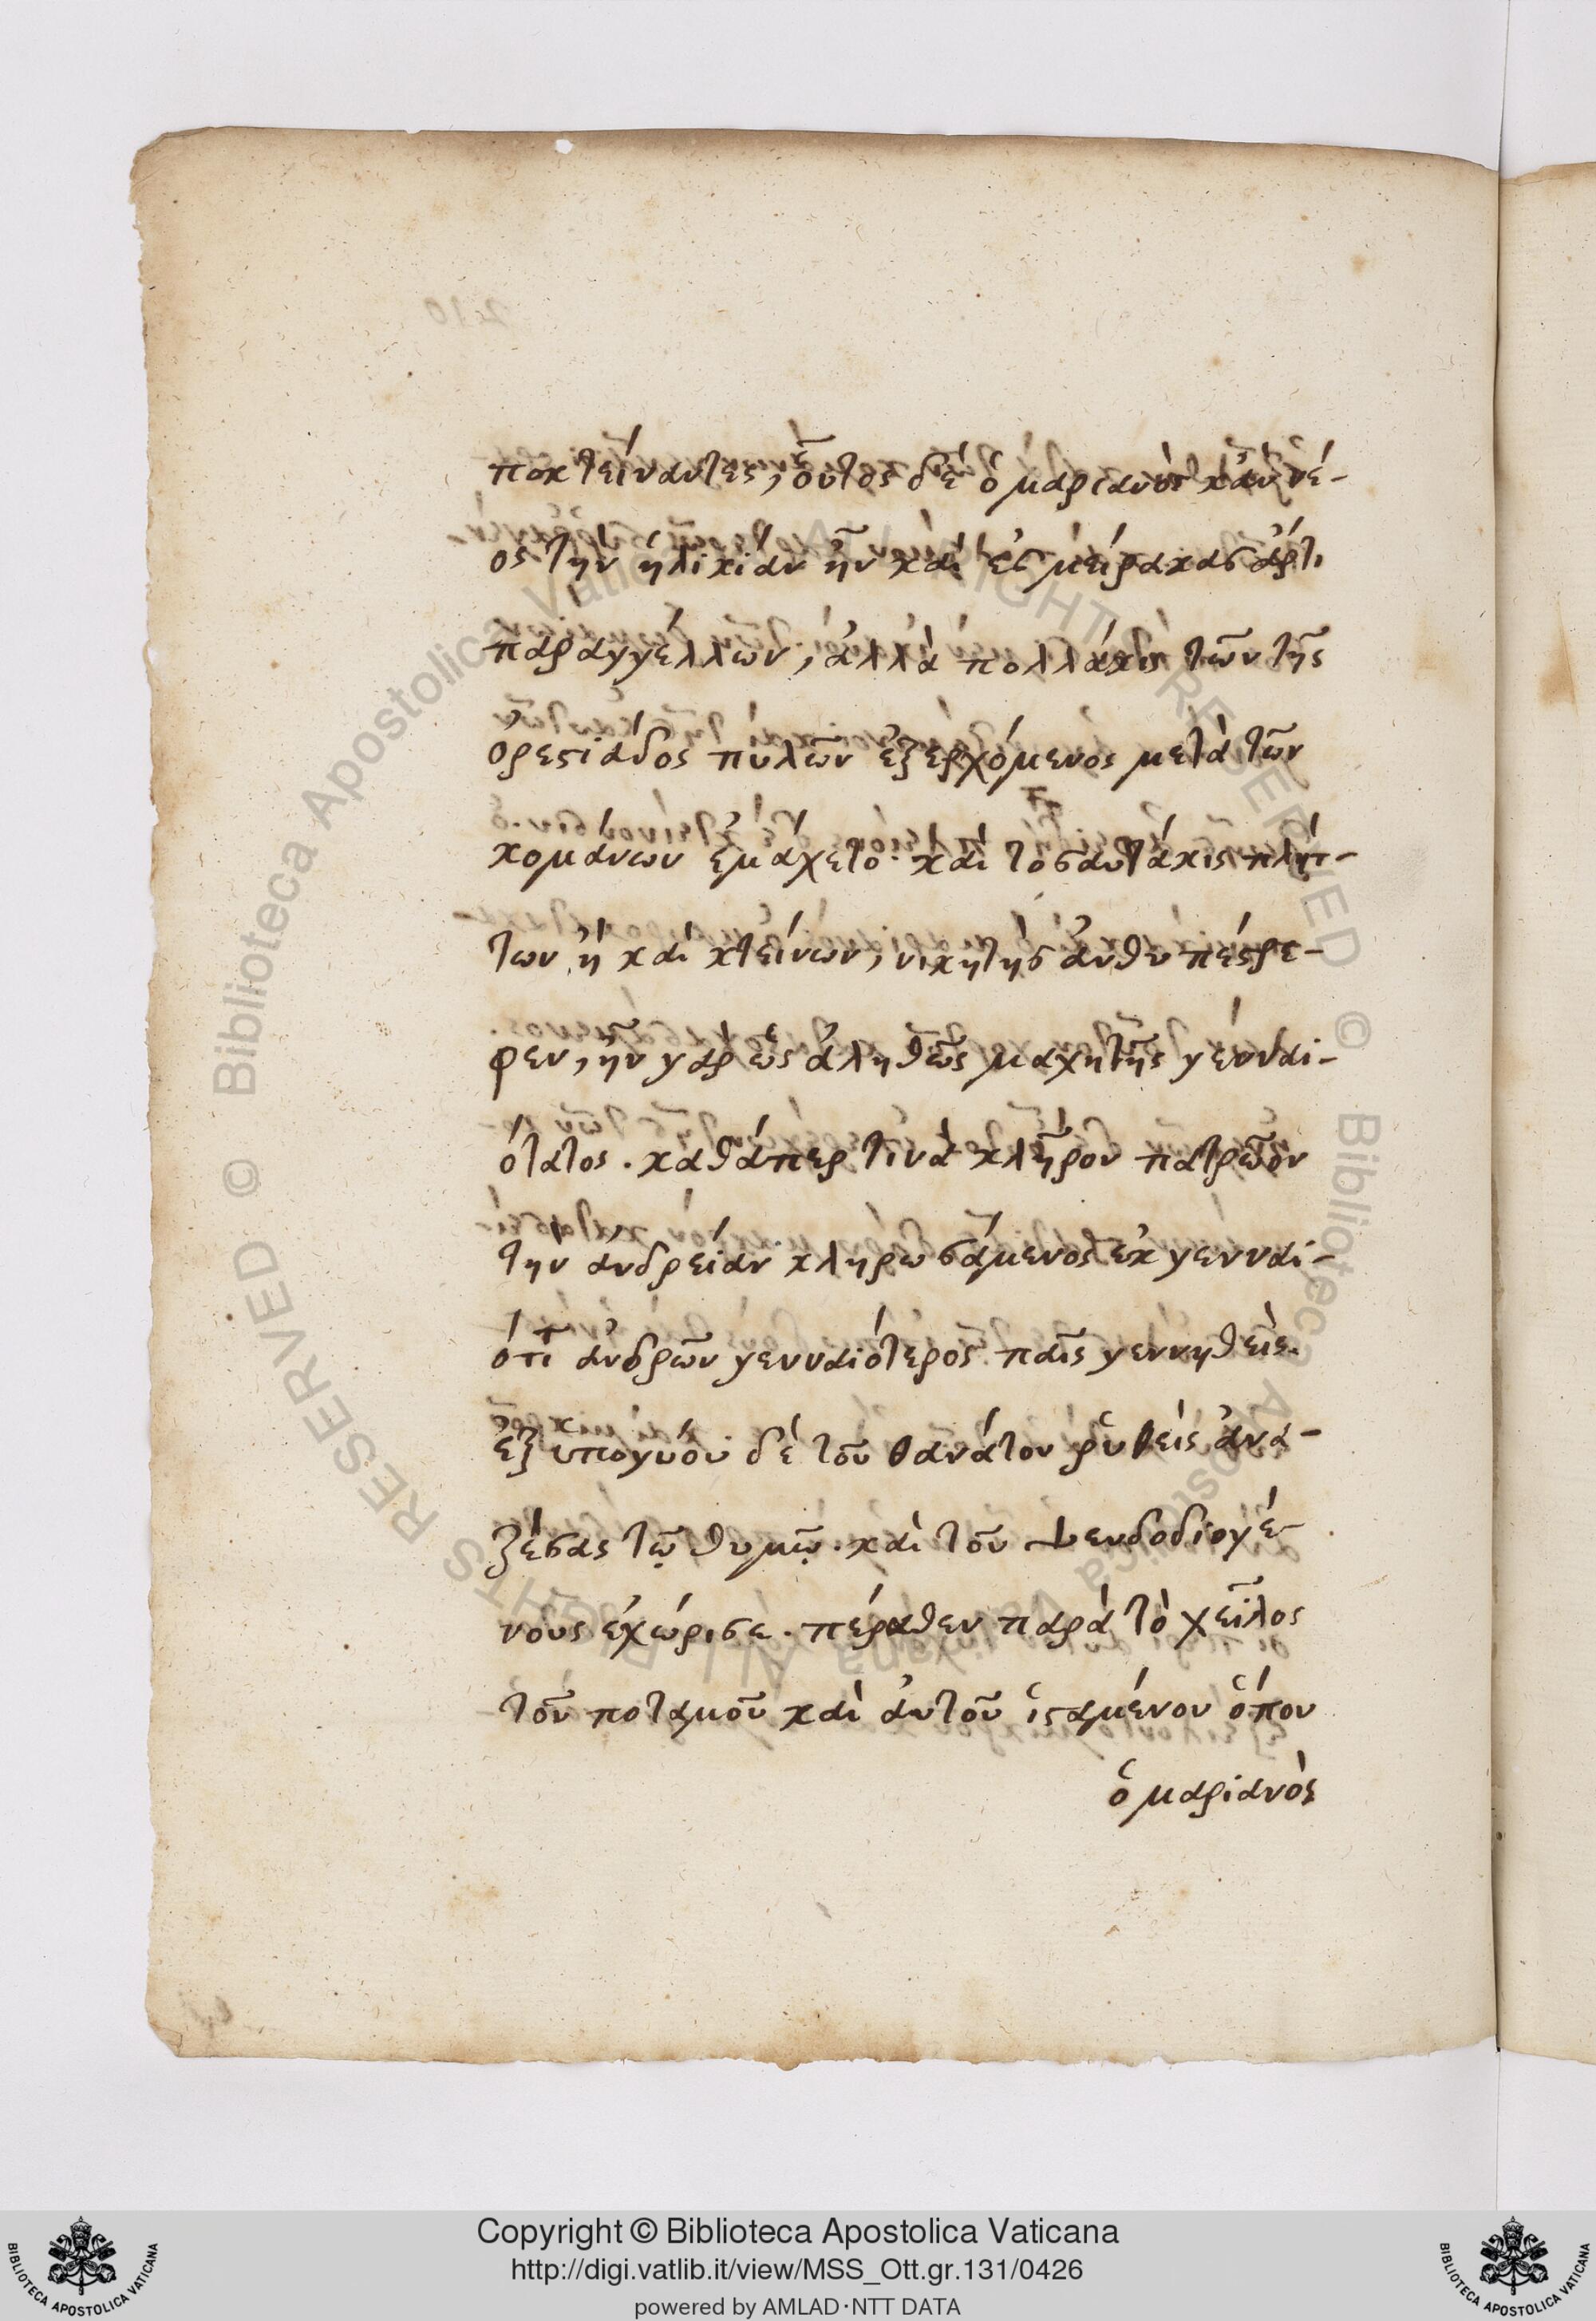 ποκτείναντες, οὗτος δὲ ὁ μαριανὸς κἂν νέ-
ος τὴν ἡλικίαν ἦν καὶ ἐς μείρακας ἄρτι
παραγγέλλων, ἀλλὰ πολλάκις τῶν τῆς
ὀρεστιάδος πυλῶν ἐξερχόμενος μετὰ τῶν
κομάνων ἐμάχετο. καὶ τοσαυτάκις πλήτ-
των ἢ καὶ κτείνων, νικητὴς ἀνθυπέστρε-
φεν, ἦν γὰρ ὡς ἀληθῶς μαχητῆς γενναι-
ότατος. καθάπερ τινὰ κλῆρον πατρῶον
τὴν ἀνδρείαν κληρωσάμενος ἐκ γενναι-
ότ ἀνδρῶν γενναιότερος παῖς γεννηθείς.
ἐξ ὑπογύου δὲ τοῦ θανάτου ῥυθεὶς ἀνα-
ζέσας τῷ θυμῷ. καὶ τοῦ ψευδοδιογέ-
νους ἐχώρισε. πέραθεν παρὰ τὸ χεῖλος
τοῦ ποταμοῦ καὶ αὐτοῦ ἱσταμένου ὅπου
ὁ μαριανὸς
Copyright © Biblioteca Apostolica Vaticana
http://digi.vatlib.it/view/MSS_Ott.gr.131/0426
powered by AMLAD·NTT DATA
BIBLIOTECA APOSTOLICA VATICANA
BIBLIOTECA APOSTOLICA VATICANA